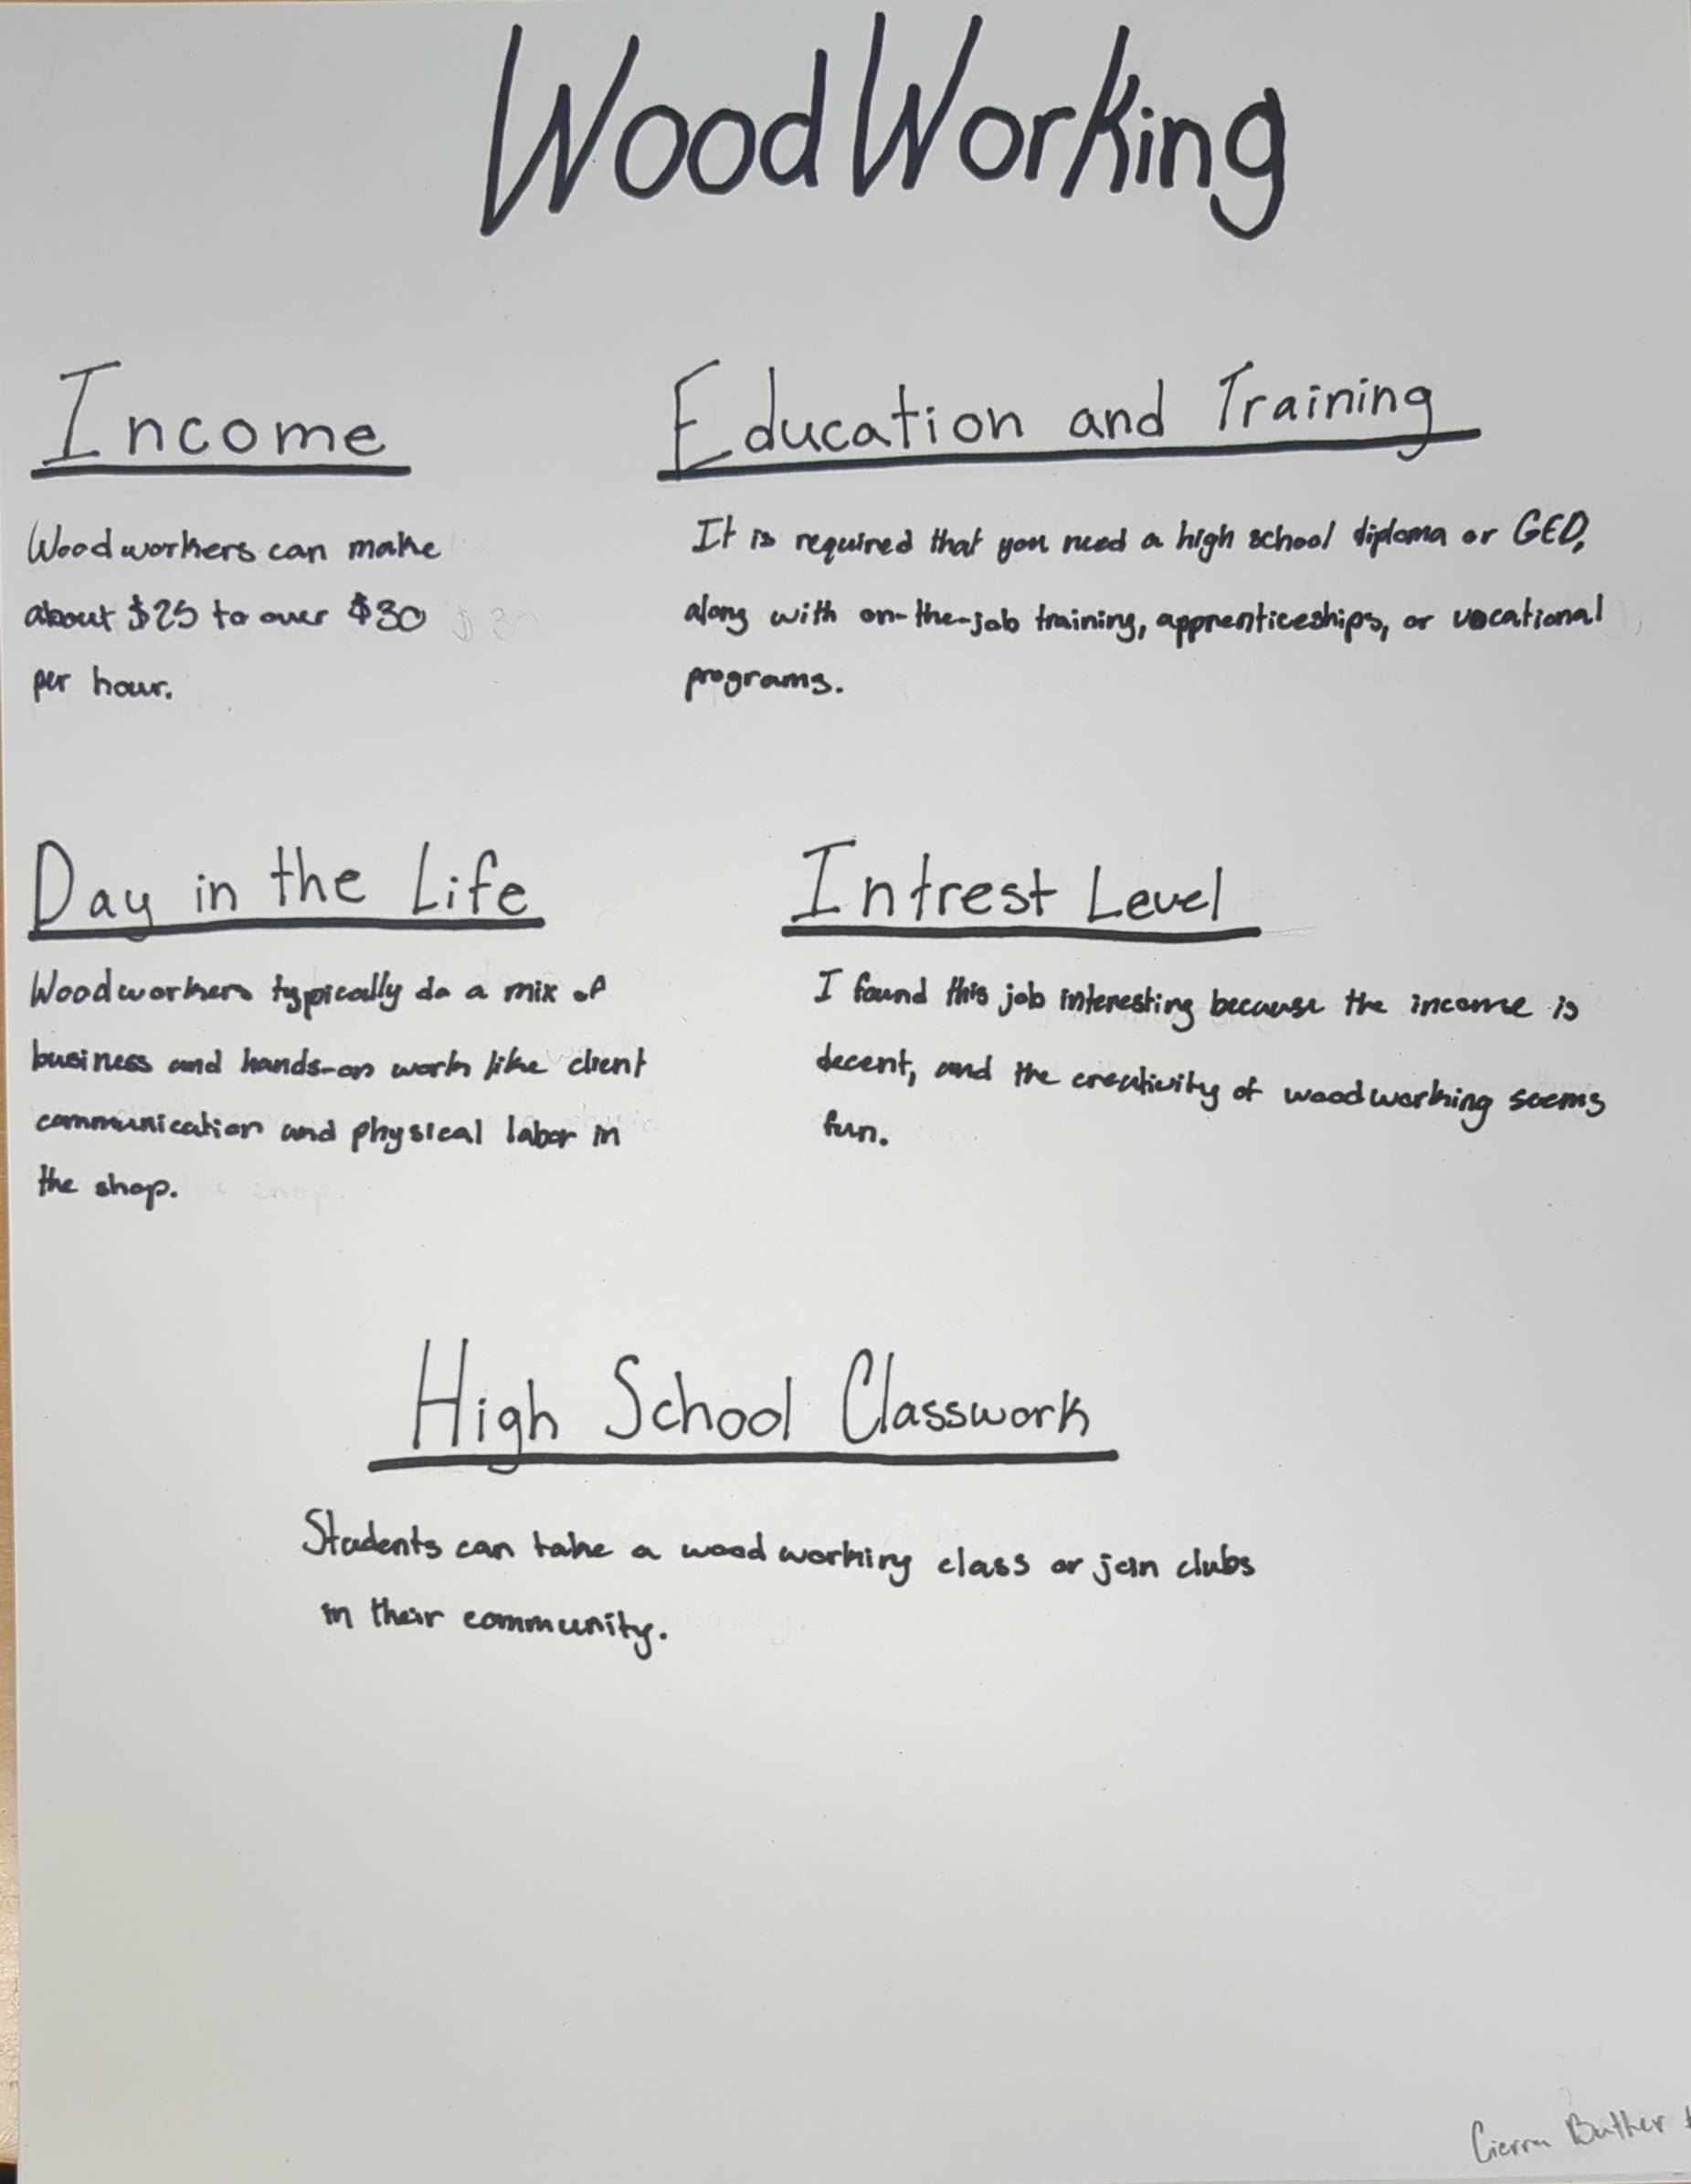 WoodWorking
Income
Woodworkers can make
about $25 to over $30
per hour.
Education and Training
It is required that you need a high school diploma or GED,
along with on-the-job training, apprenticeships, or vocational
programs.
Day in the Life
Woodworkers typically do a mix of
business and hands-on work like client
communication and physical labor in
the shop.
Intrest Level
I found this job interesting because the income is
decent, and the creativity of woodworking seems
fun.
High School Classwork
Students can take a woodworking class or join clubs
in their community.
Cierra